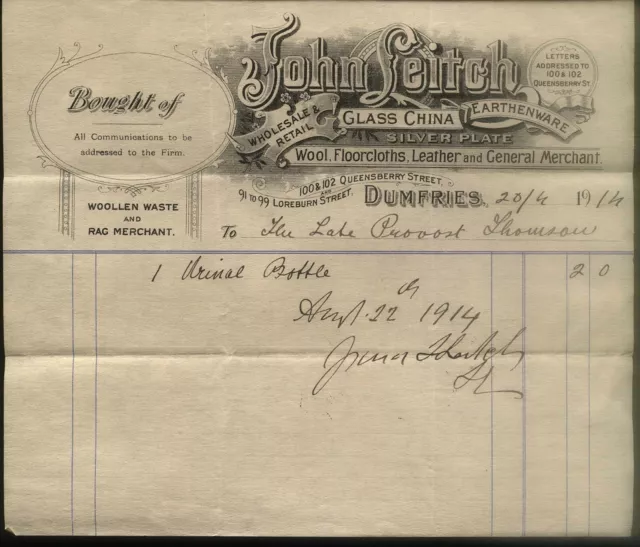 John Leitch
LETTERS
ADDRESSED TO
100 & 102
QUEENSBERRY ST.
Bought of
WHOLESALE &
RETAIL
GLASS CHINA
EARTHENWARE
SILVER PLATE
All Communications to be
addressed to the Firm.
Wool, Floorcloths, Leather and General Merchant.
100 & 102 QUEENSBERRY STREET,
AND
91 TO 99 LOREBURN STREET.
WOOLLEN WASTE
AND
RAG MERCHANT.
DUMFRIES, 20/4 1914
To The Late Provost Thomson
1 Urinal Bottle 2 0
22 1914